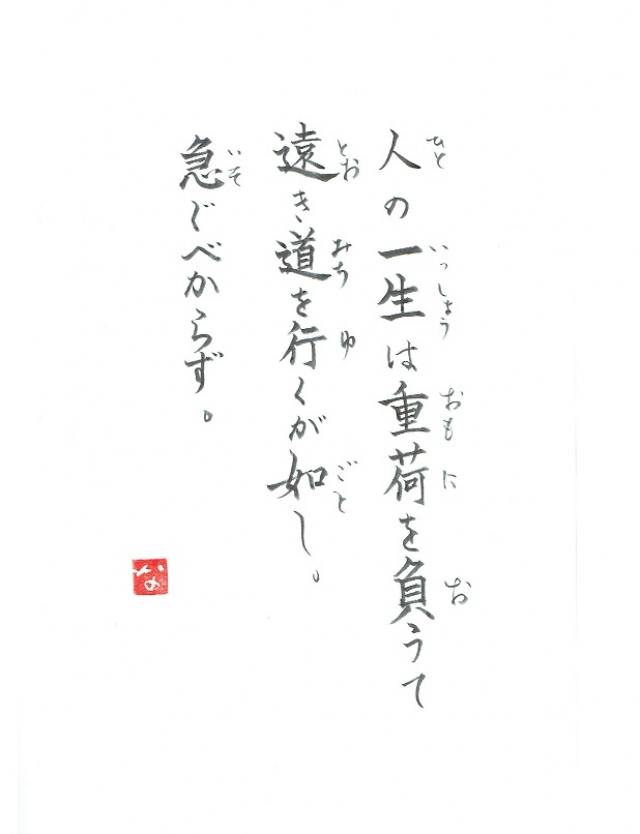 人の一生は重荷を負うて
ひと いっしょう おもに お
遠き道を行くが如し。
とお みち ゆ ごと
急ぐべからず。
いそ